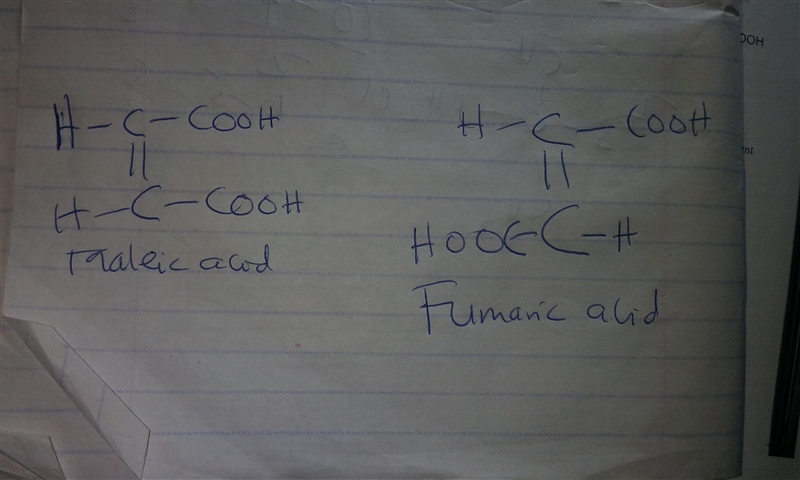 H-C-COOH
||
H-C-COOH
Maleic acid
H-C-COOH
||
HOOC-C-H
Fumaric acid
OOH
ent